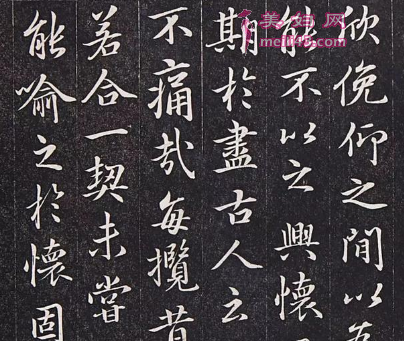 欣俛仰之間以為
能不以之興懷
期於盡古人云
不痛哉每攬昔
若合一契未嘗
能喻之於懷固
美妇网
meifu45.com